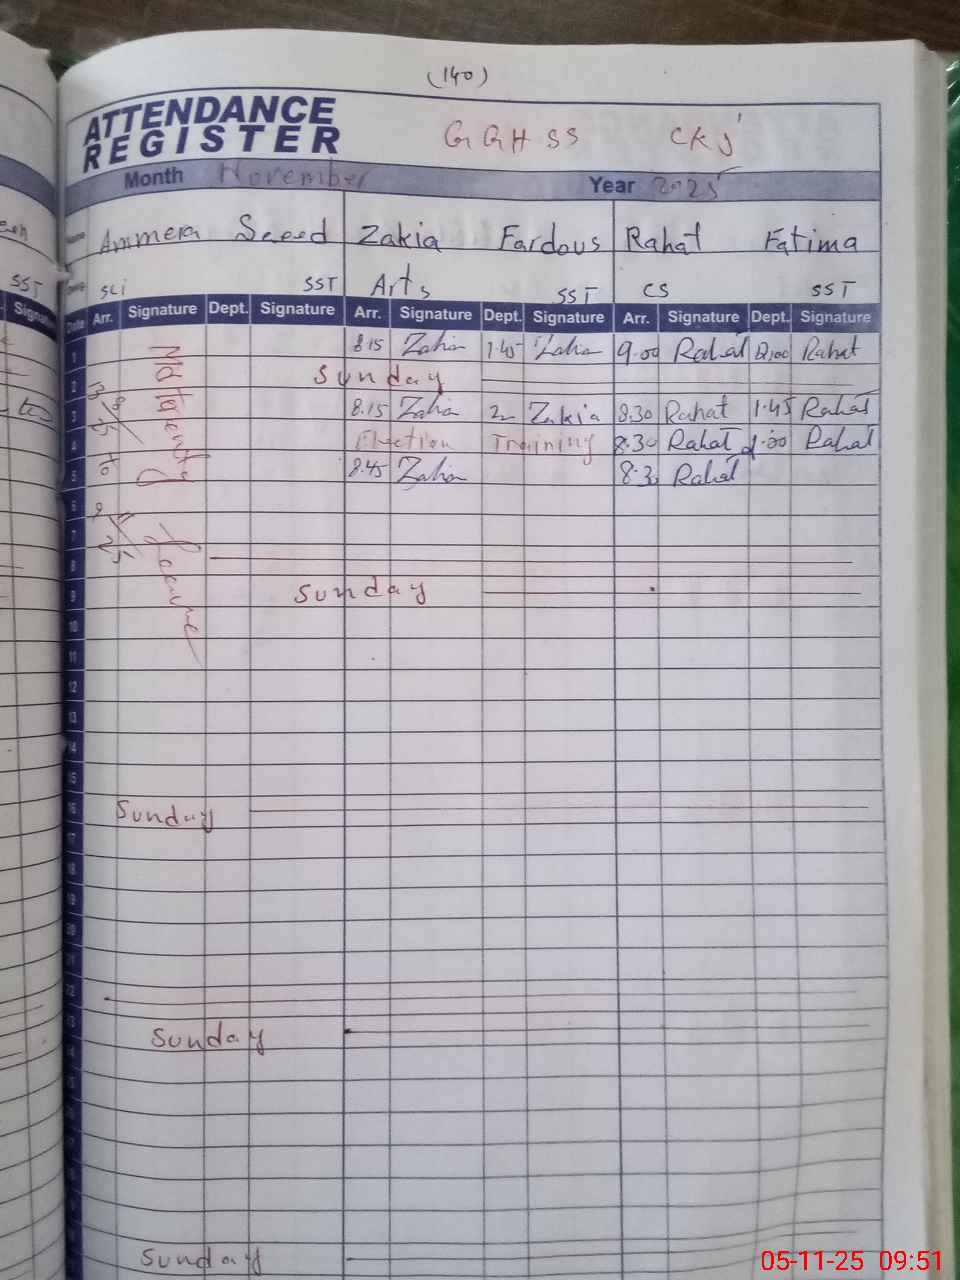 (140)
ATTENDANCE
REGISTER
GGHSS CKJ
Month November Year 2025
Name Ammera Saeed Zakia Fardous Rahat Fatima
SCI SST Arts SST CS SST
Date Arr. Signature Dept. Signature Arr. Signature Dept. Signature Arr. Signature Dept. Signature
1 8.15 Zakia 1.45 Zakia 9.00 Rahat 12.00 Rahat
2 Sunday
3 8.15 Zakia 2 Zakia 8.30 Rahat 1.45 Rahat
4 Election Training 8.30 Rahat Rahat
5 8.45 Zakia 8.3 Rahat
Maternity
to
6
7
8
9 Sunday
10
11
12
13
14
15
16 Sunday
17
18
19
20
21
22
23 Sunday
Sunday
SST
05-11-25 09:51